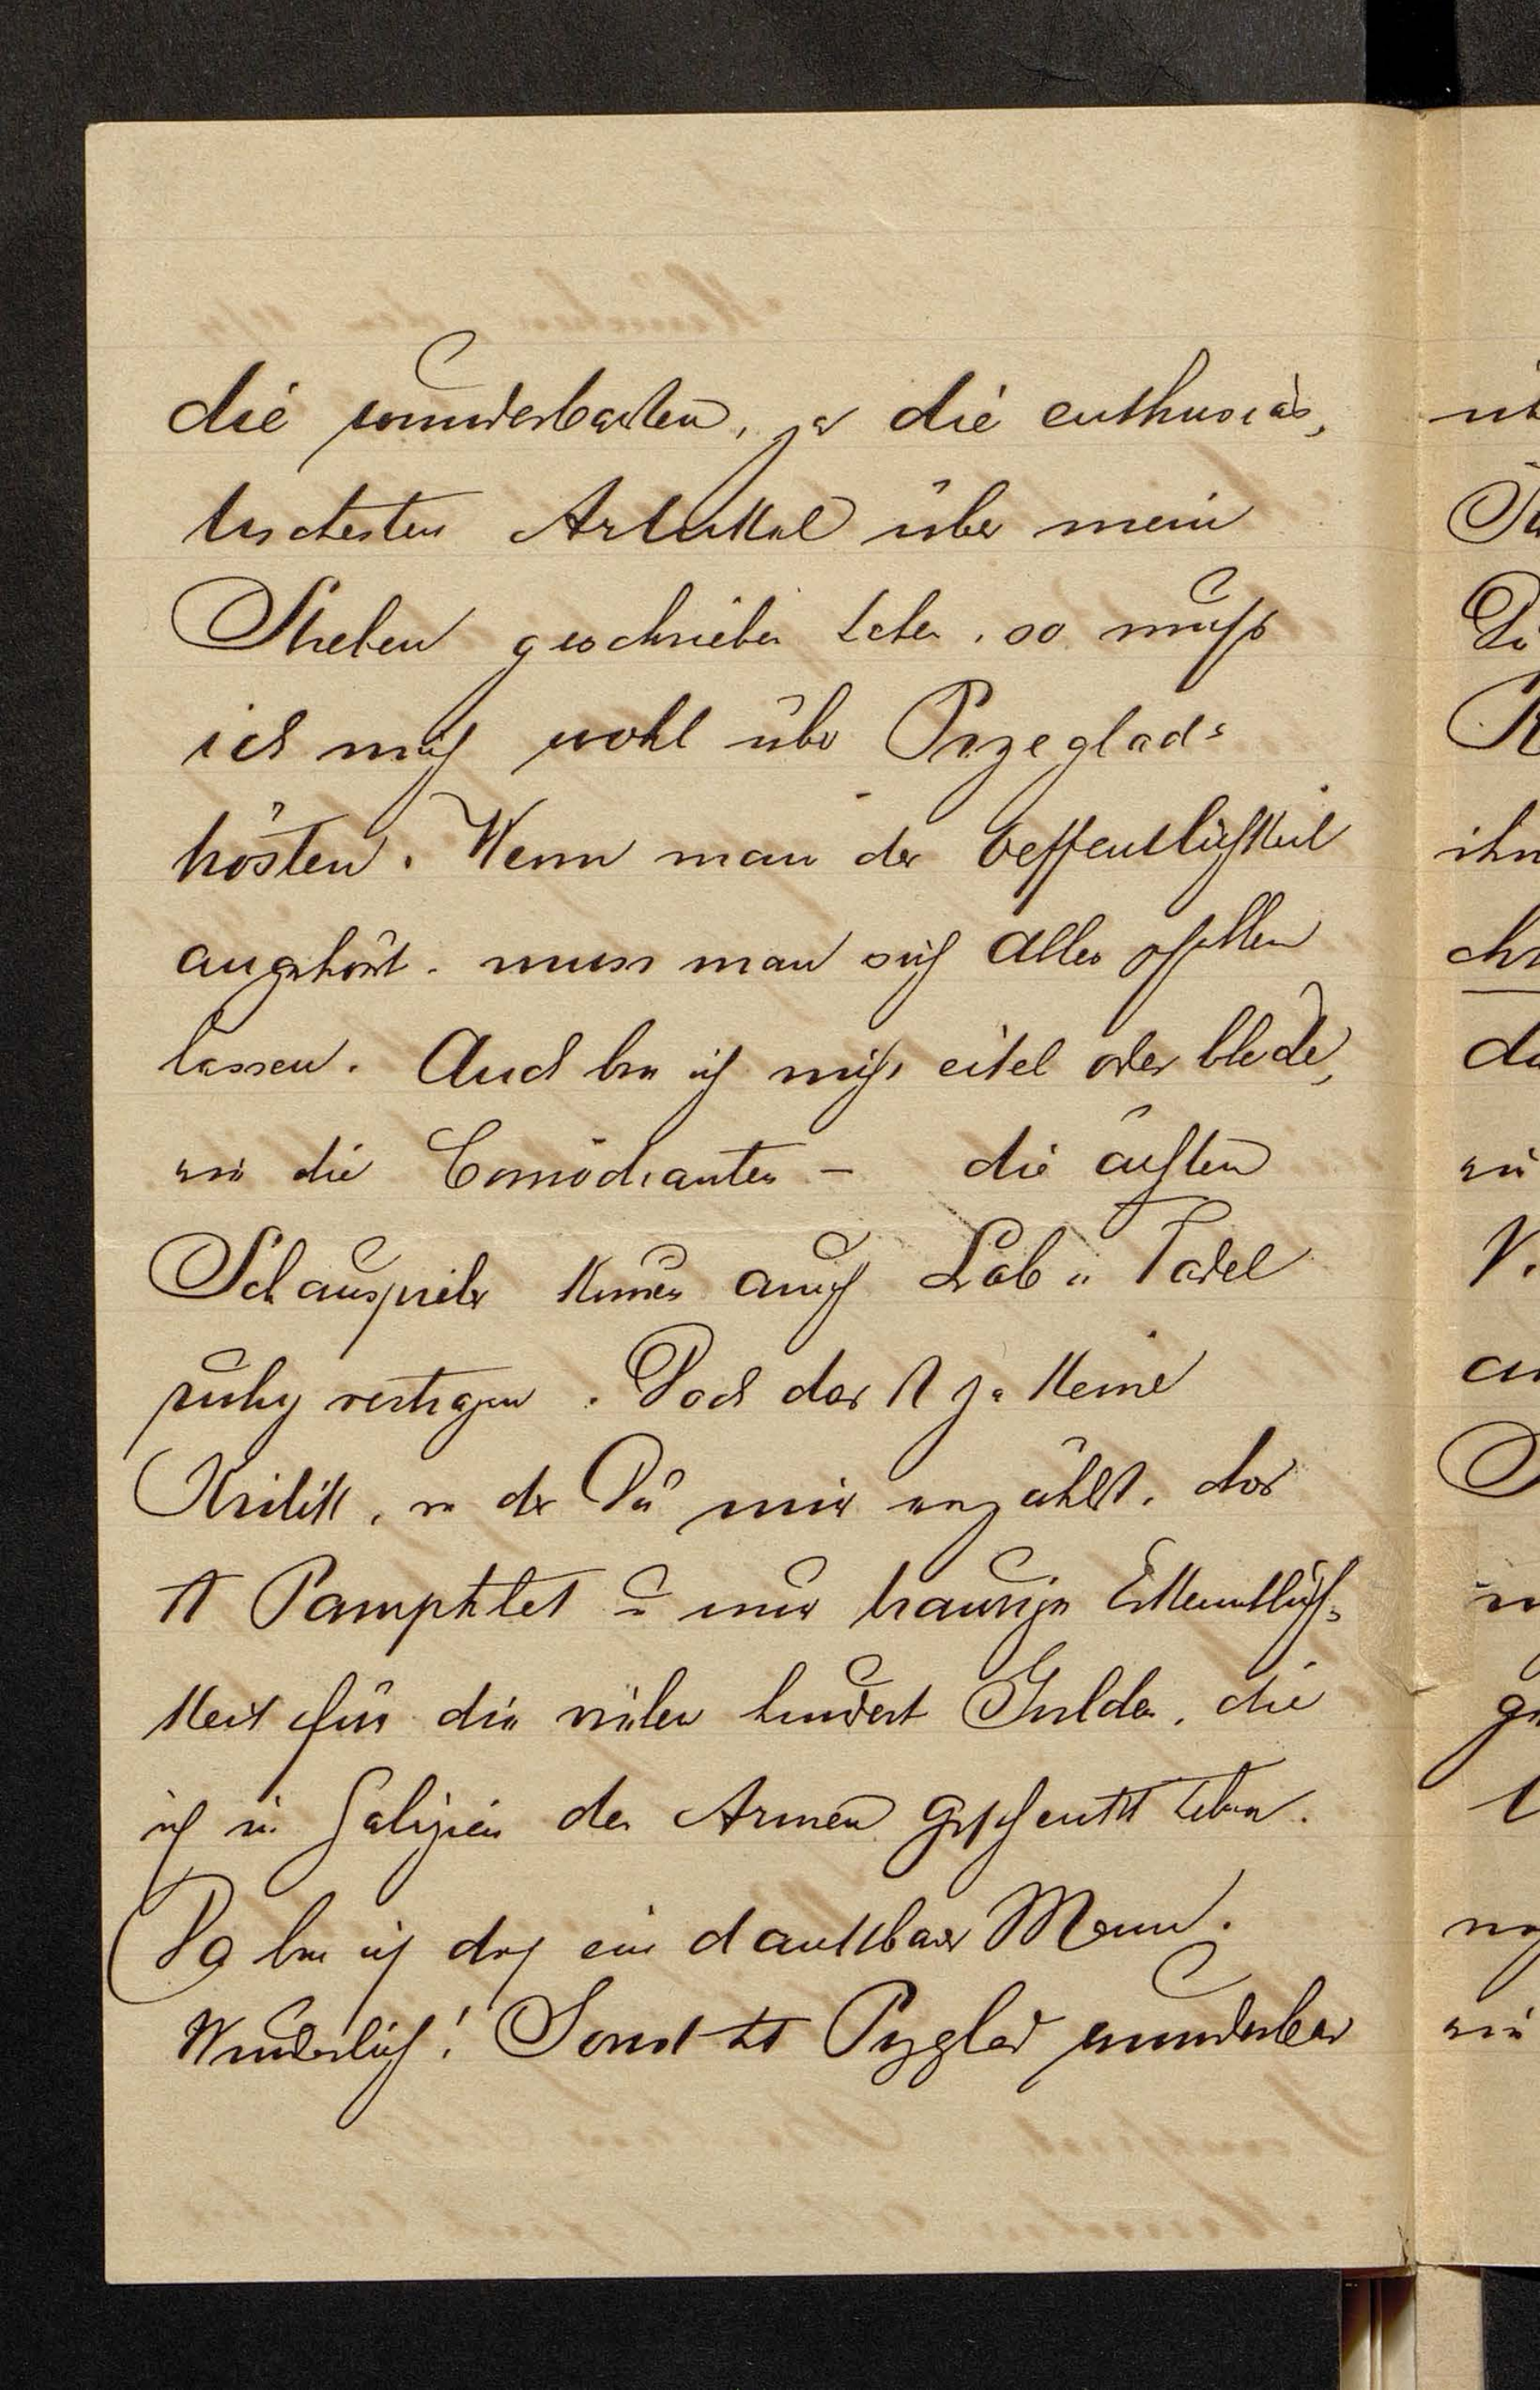 die wunderbarsten, ja die enthusias,
tischesten Artikkel über mein
Streben geschrieben haben, so muß
ich mich wohl über Przeglad
trösten. Wenn man der Oeffentlichkeit
angehört, muss man sich alles gefallen
lassen. Auch bin ich nicht eitel oder blöde,
wie die Comödianten - die ächten
Schauspieler können auch Lob u Tadel
ruhig vertragen. Doch das ist ja keine
Kritik, von der Du mir erzählst, das
ist Pamphlet u eine traurige Erkenntlich-
keit für die vielen hundert Gulden, die
ich in Galizien den Armen geschenkt habe.
Da bin ich doch ein dankbarer Mann.
Wunderlich! Sonst ist Przglad wunderbar